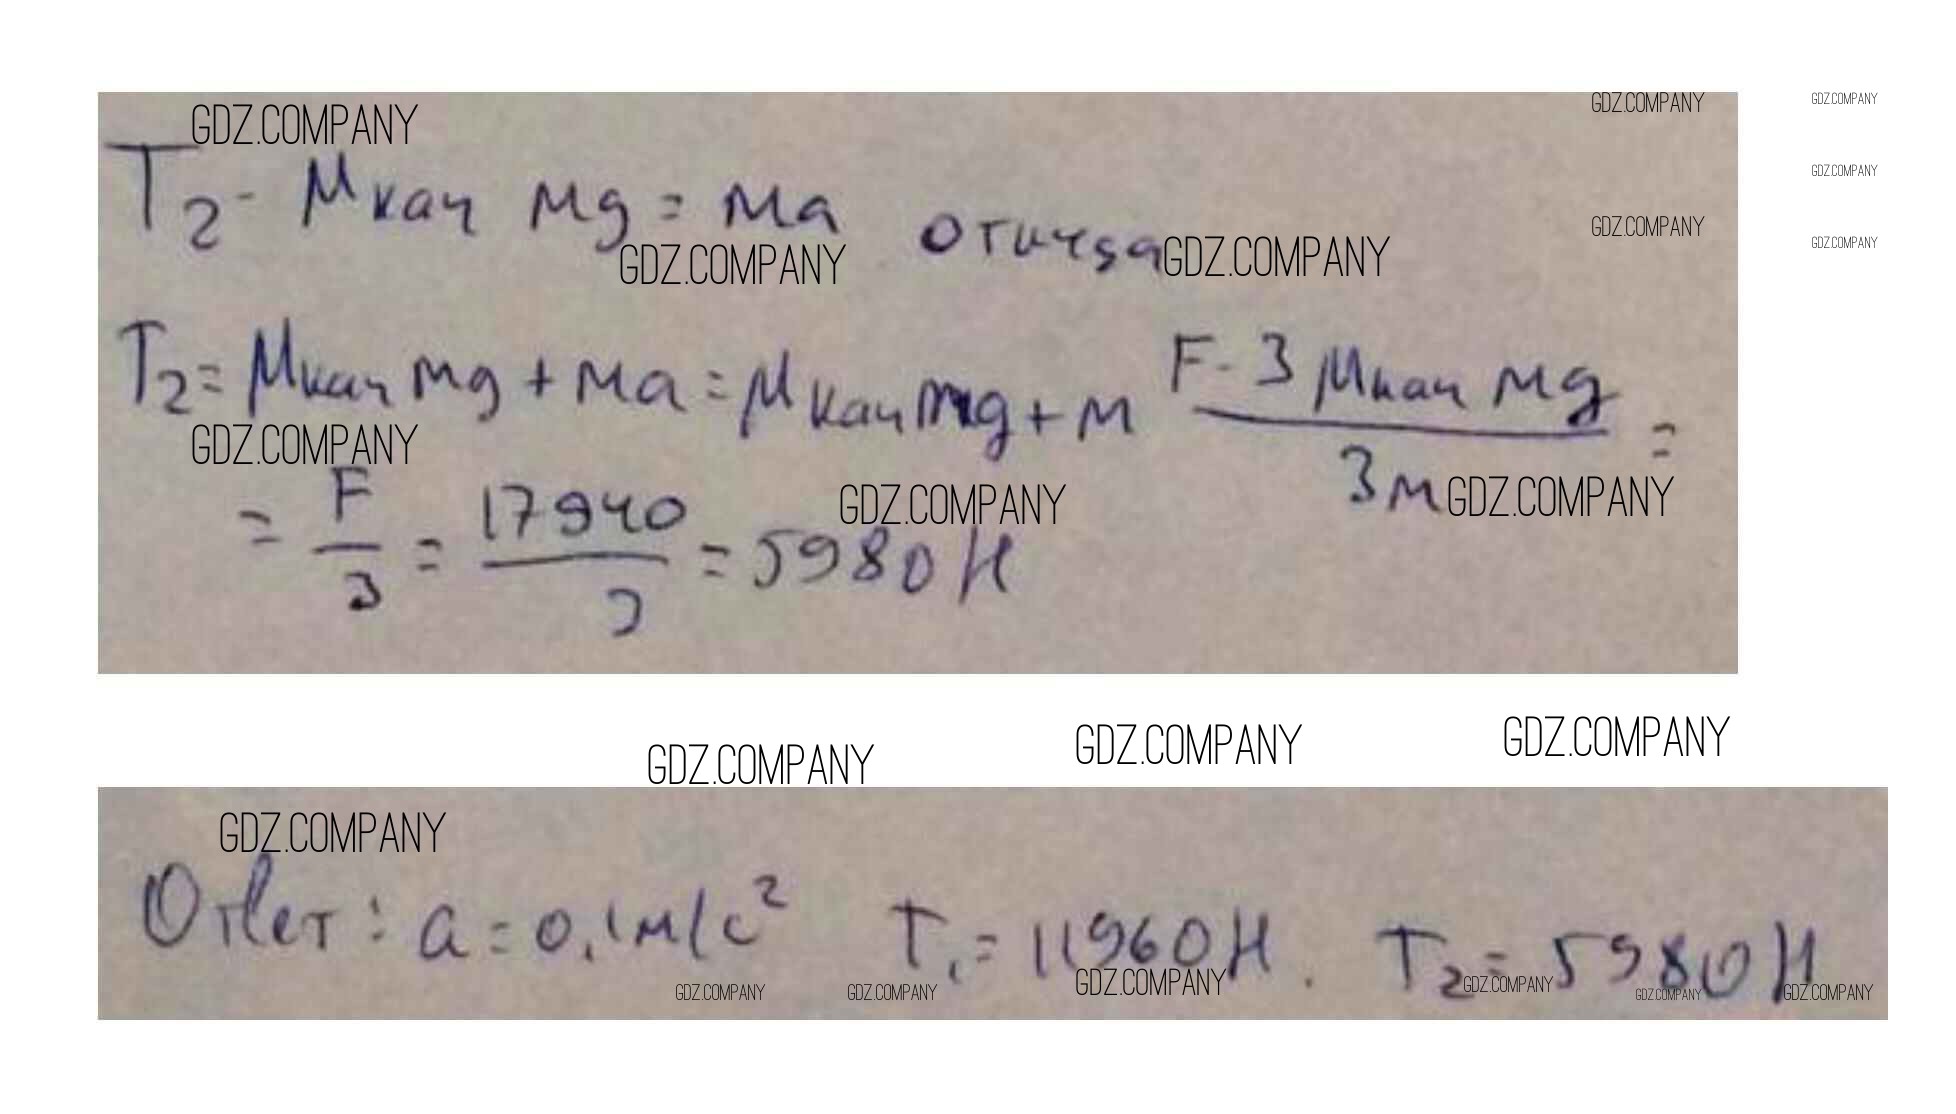 GDZ.COMPANY
GDZ.COMPANY
GDZ.COMPANY
T₂ - μкач mg = ma отсюда
GDZ.COMPANY
GDZ.COMPANY
GDZ.COMPANY
GDZ.COMPANY
GDZ.COMPANY
T₂ = μкач mg + ma = μкач mg + m (F - 3 μкач mg)/(3m) =
GDZ.COMPANY
GDZ.COMPANY
GDZ.COMPANY
= F/3 = 17940/3 = 5980 Н
GDZ.COMPANY
GDZ.COMPANY
GDZ.COMPANY
GDZ.COMPANY
Ответ: a = 0,1 м/с² T₁ = 11960 Н. T₂ = 5980 Н
GDZ.COMPANY
GDZ.COMPANY
GDZ.COMPANY
GDZ.COMPANY
GDZ.COMPANY
GDZ.COMPANY